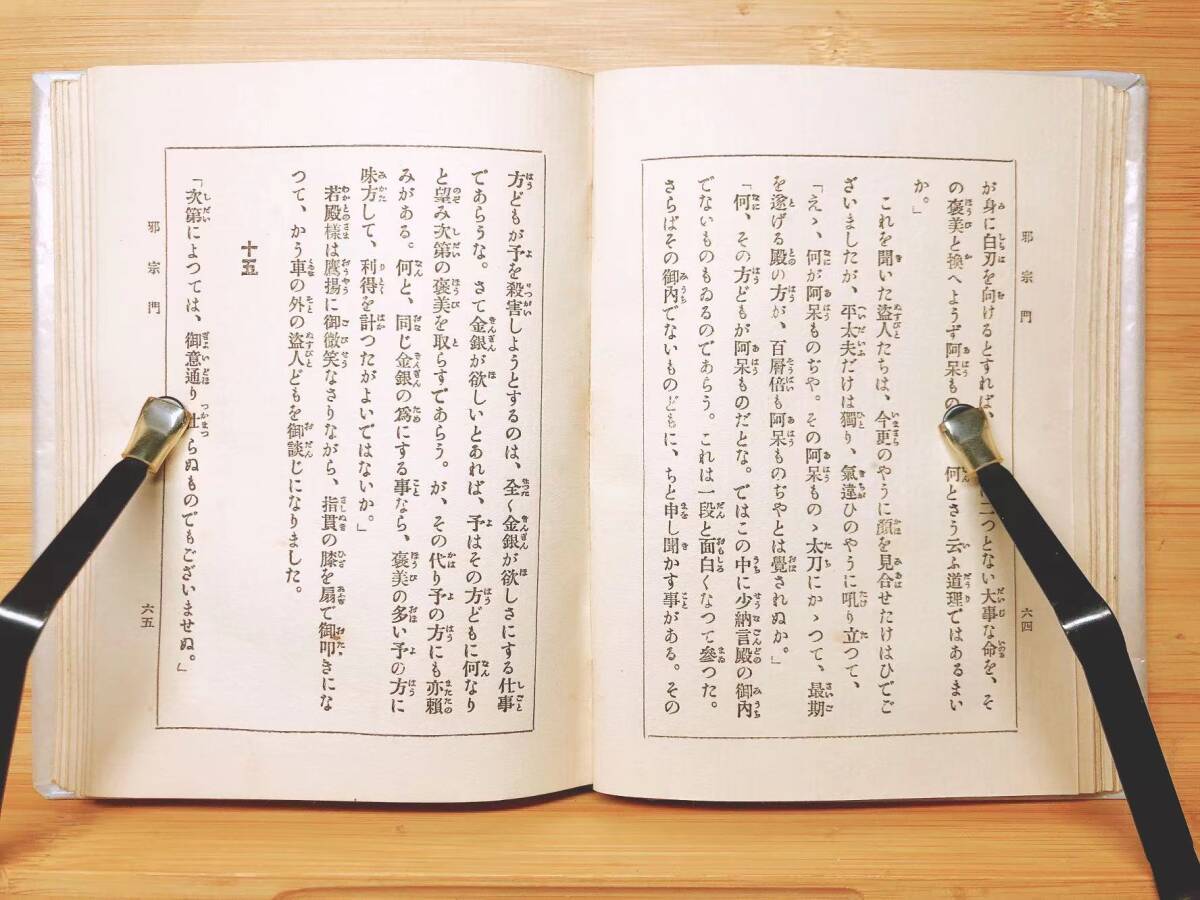 邪宗門
六四
が身に白刃を向けるとすれば、二つとない大事な命を、そ
の褒美と換へようず阿呆もの 何とさう云ふ道理ではあるまい
か。」
これを聞いた盗人たちは、今更のやうに顔を見合せたけはひでご
ざいましたが、平太夫だけは獨り、氣違ひのやうに吼り立つて、
「えゝ、何が阿呆ものぢや。その阿呆ものゝ太刀にかゝつて、最期
を遂げる殿の方が、百層倍も阿呆ものぢやとは覺されぬか。」
「何、その方どもが阿呆ものだとな。ではこの中に少納言殿の御内
でないものもゐるのであらう。これは一段と面白くなつて參つた。
さらばその御内でないものどもに、ちと申し聞かす事がある。その
方どもが予を殺害しようとするのは、全く金銀が欲しさにする仕事
であらうな。さて金銀が欲しいとあれば、予はその方どもに何なり
と望み次第の褒美を取らすであらう。が、その代り予の方にも亦頼
みがある。何と、同じ金銀の爲にする事なら、褒美の多い予の方に
味方して、利得を計つたがよいではないか。」
若殿樣は鷹揚に御微笑なさりながら、指貫の膝を扇で御叩きにな
つて、かう車の外の盗人どもを御談じになりました。
十五
「次第によつては、御意通り仕らぬものでもございませぬ。」
邪宗門
六五